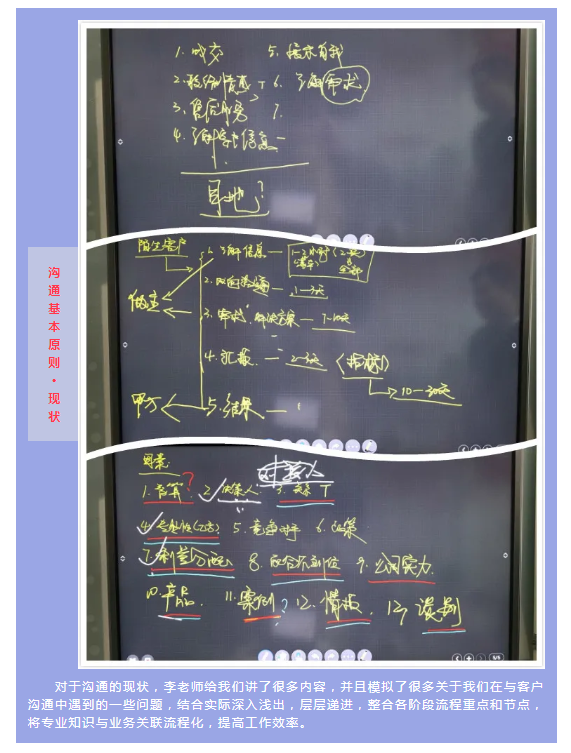 1. 成交 5. 
2. 6. 了解需求
3. 售后服务 7.
4. 信息
目地?
陌生客户
1. 了解信息
2. 1—3天
3. 需求, 解决方案 7—10天
4. 汇报 2—3天 〈招标〉
10—30天
甲方 5. 结果
因素:
对接人
1. 预算? 2. 决策人 3. 关系
4. 5. 竞争对手 6. 政策
7. 利益分配 8. 配合不到位 9. 公司实力
10. 产品 11. 案例? 12. 情报 13, 谈判
沟通基本原则·现状
对于沟通的现状，李老师给我们讲了很多内容，并且模拟了很多关于我们在与客户
沟通中遇到的一些问题，结合实际深入浅出，层层递进，整合各阶段流程重点和节点，
将专业知识与业务关联流程化，提高工作效率。